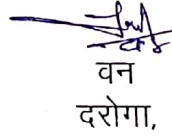 वन
दरोगा,